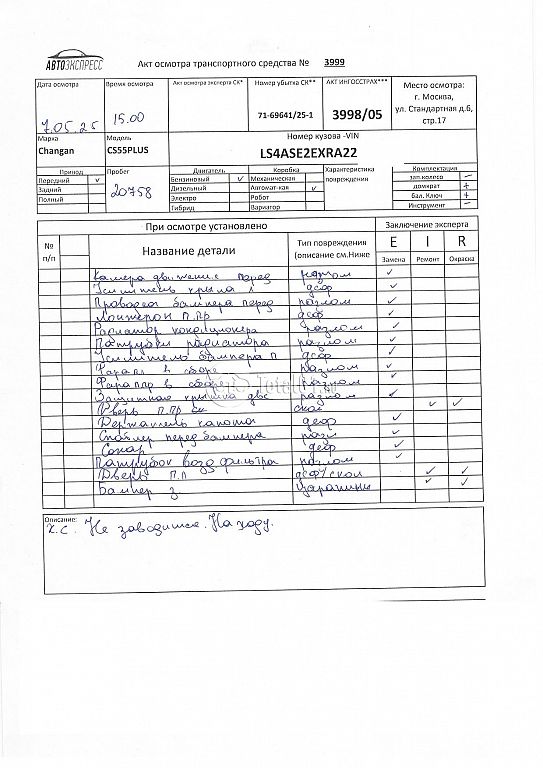 АВТОЭКСПРЕСС
Акт осмотра транспортного средства № 3999
Дата осмотра Время осмотра Акт осмотра эксперта СК* Номер убытка СК** АКТ ИНГОССТРАХ*** Место осмотра:
г. Москва,
ул. Стандартная д.6,
стр.17
7.05.25 15.00 71-69641/25-1 3998/05
Марка Модель Номер кузова -VIN
Changan CS55PLUS LS4ASE2EXRA22
Привод Пробег Двигатель Коробка Характеристика повреждения Комплектация
Передний ✓ 20758 Бензиновый ✓ Механическая зап.колесо –
Задний Дизельный Автомат-кая ✓ домкрат +
Полный Электро Робот бал. Ключ +
Гибрид Вариатор Инструмент –
При осмотре установлено Заключение эксперта
№ п/п Название детали Тип повреждения (описание см.Ниже E I R
Замена Ремонт Окраска
Камера движения перед ✓
Усилитель крыла л деф ✓
Проводка бампера перед разлом ✓
Лонжерон п.пр деф ✓
Радиатор кондиционера разлом ✓
Патрубки радиатора разлом ✓
Усилитель бампера п деф ✓
Фара л в сборе разлом ✓
Фара пр в сборе разлом ✓
Защитная крышка двс разлом ✓
Дверь п.пр ск скол ✓ ✓
Держатель капота деф ✓
Спойлер перед бампера разл ✓
Сонар деф ✓
Патрубок возд фильтра разлом ✓
Дверь п.л деф/скол ✓ ✓
Бампер з царапины ✓ ✓
Описание:
Х.С. Не заводится. На ходу.